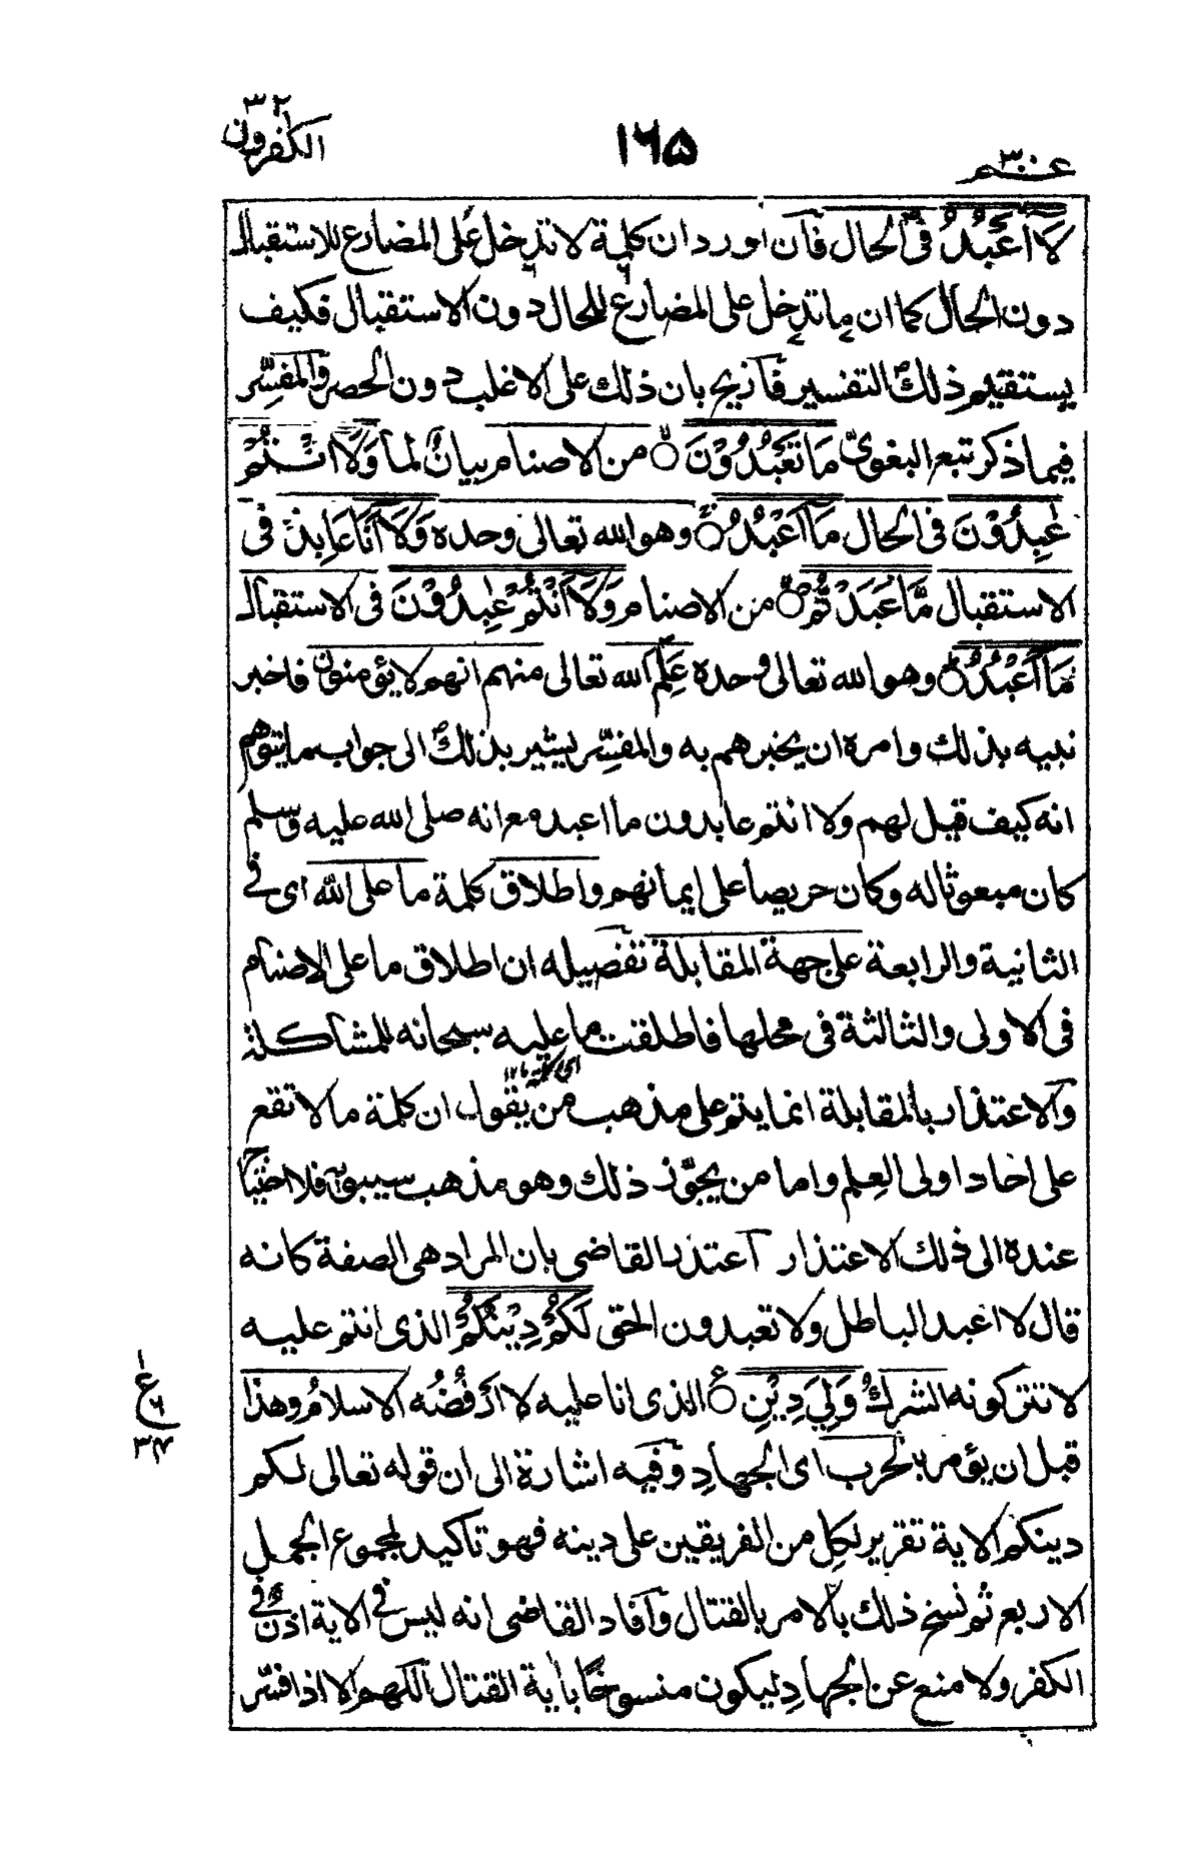 عـم ٣٠
١٦٥
الكفرون
لَآ اَعْبُدُ فى الحال فآن اورد ان كلمة لا تدخل على المضارع للاستقبال
دون الحال كما ان ما تدخل على المضارع للحال دون الاستقبال فكيف
يستقيم ذلك التفسير فآزيح بان ذلك على الاغلب دون الحصر والمفسِّر
فيما ذكر تبع البغوى مَا تَعْبُدُوْنَ ○ من الاصنام بيانٌ لما وَلَآ اَنْتُمْ
عٰبِدُوْنَ فى الحال مَآ اَعْبُدُ ○ وهو الله تعالى وحده وَلَآ اَنَا عَابِدٌ فى
الاستقبال مَّا عَبَدْتُّمْ ○ من الاصنام وَلَآ اَنْتُمْ عٰبِدُوْنَ فى الاستقبال
مَآ اَعْبُدُ ○ وهو الله تعالى وحده عَلِمَ الله تعالى منهم انهم لا يؤمنون فاخبر
نبيه بذلك وامره ان يخبرهم به والمفسِّر يشير بذلك الى جواب ما يتوهم
انه كيف قيل لهم ولا انتم عابدون ما اعبد مع انه صلى الله عليه وسلم
كان مبعوثا له وكان حريصا على ايمانهم واطلاق كلمة ما على الله اى فى
الثانية والرابعة على جهة المقابلة تفصيله ان اطلاق ما على الاصنام
فى الاولى والثالثة فى محلها فاطلقت ما عليه سبحانه للمشاكلة
اى كلمة ما ١٢
والاعتذار بالمقابلة انما يتم على مذهب من يقول ان كلمة ما لا تقع
على احاد اولى العِلم واما من يجوّز ذلك وهو مذهب سيبويه فلا احتياج
عنده الى ذلك الاعتذار آعتذر القاضى بان المراد هى الصفة كانه
قال لا اعبد الباطل ولا تعبدون الحق لَكُمْ دِيْنُكُمْ الذى انتم عليه
لا تتركونه الشركُ وَلِيَ دِيْنِ ○ الذى انا عليه لا ارفُضُه الاسلامُ وهذا
قبل ان يؤمر بالحرب اى الجهادِ وفيه اشارة الى ان قوله تعالى لكم
دينكم الاية تقرير لكل من الفريقين على دينه فهو تاكيد لمجموع الجمل
الاربع ثم نسخ ذلك بالامر بالقتال وآفاد القاضى انه ليس فى الاية اذنٌ فى
الكفر ولا منع عن الجهادِ ليكون منسوخًا باية القتال آللهم الا اذا فسّر